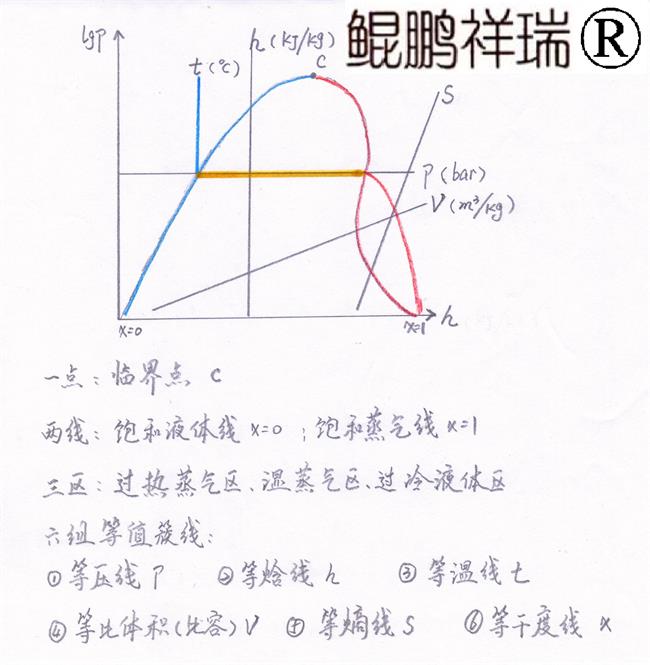 鲲鹏祥瑞®
lgP
h(kJ/kg)
t(℃)
C
S
P(bar)
V(m³/kg)
x=0
x=1
h
一点：临界点 C
两线：饱和液体线 x=0；饱和蒸气线 x=1
三区：过热蒸气区、湿蒸气区、过冷液体区
六组等值簇线：
①等压线P ②等焓线h ③等温线t
④等比体积(比容)V ⑤等熵线S ⑥等干度线 x